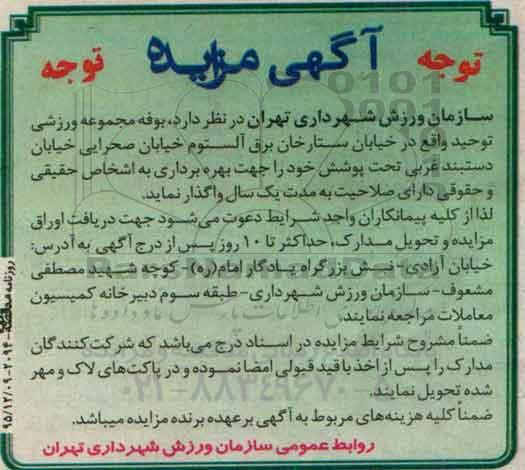 توجه آگهی مزایده توجه
سازمان ورزش شهرداری تهران در نظر دارد، بوفه مجموعه ورزشی
توحید واقع در خیابان ستارخان برق آلستوم خیابان صحرایی خیابان
دستبند غربی تحت پوشش خود را جهت بهره برداری به اشخاص حقیقی
و حقوقی دارای صلاحیت به مدت یک سال واگذار نماید.
لذا از کلیه پیمانکاران واجد شرایط دعوت می‌شود جهت دریافت اوراق
مزایده و تحویل مدارک، حداکثر تا ۱۰ روز پس از درج آگهی به آدرس:
خیابان آزادی- نبش بزرگراه یادگار امام(ره)- کوچه شهید مصطفی
مشعوف- سازمان ورزش شهرداری- طبقه سوم دبیرخانه کمیسیون
معاملات مراجعه نمایند.
ضمناً مشروح شرایط مزایده در اسناد درج می‌باشد که شرکت کنندگان
مدارک را پس از اخذ با قید قبولی امضا نموده و در پاکت‌های لاک و مهر
شده تحویل نمایند.
ضمناً کلیه هزینه‌های مربوط به آگهی بر عهده برنده مزایده میباشد.
روابط عمومی سازمان ورزش شهرداری تهران
۰۲۱-۸۸۳۴۹۶۷۰
روزنامه ۹۵/۱۲/۰۹-۲۰۹۴